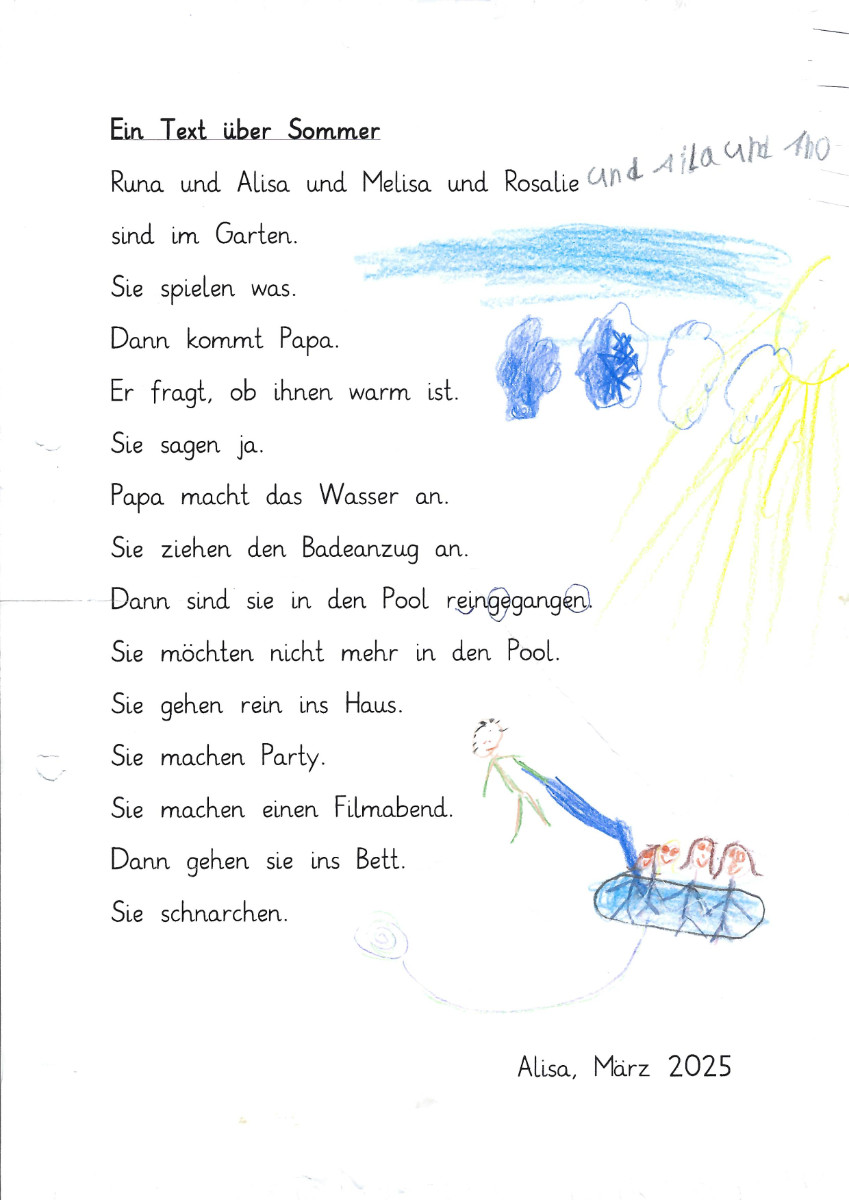 Ein Text über Sommer
Runa und Alisa und Melisa und Rosalie und Aila und
sind im Garten.
Sie spielen was.
Dann kommt Papa.
Er fragt, ob ihnen warm ist.
Sie sagen ja.
Papa macht das Wasser an.
Sie ziehen den Badeanzug an.
Dann sind sie in den Pool reingegangen.
Sie möchten nicht mehr in den Pool.
Sie gehen rein ins Haus.
Sie machen Party.
Sie machen einen Filmabend.
Dann gehen sie ins Bett.
Sie schnarchen.
Alisa, März 2025